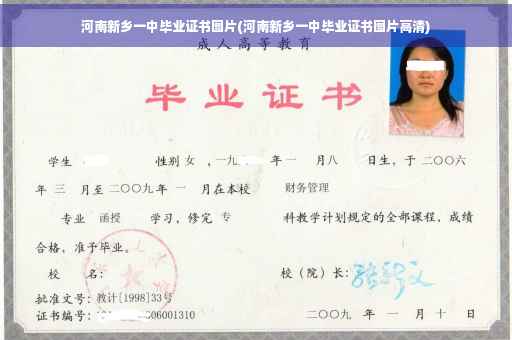 河南新乡一中毕业证书图片(河南新乡一中毕业证书图片高清)
成人高等教育
毕业证书
学生 性别 女 ，一九 年 一 月八 日生，于 二〇〇六
年 三 月至 二〇〇九 年 一 月在本校 财务管理
专业 函授 学习，修完 专 科教学计划规定的全部课程，成绩
合格，准予毕业。
校 名： 校（院）长：
批准文号：教计[1998]33号
证书编号： 06001310 二〇〇九 年 一 月 十 日